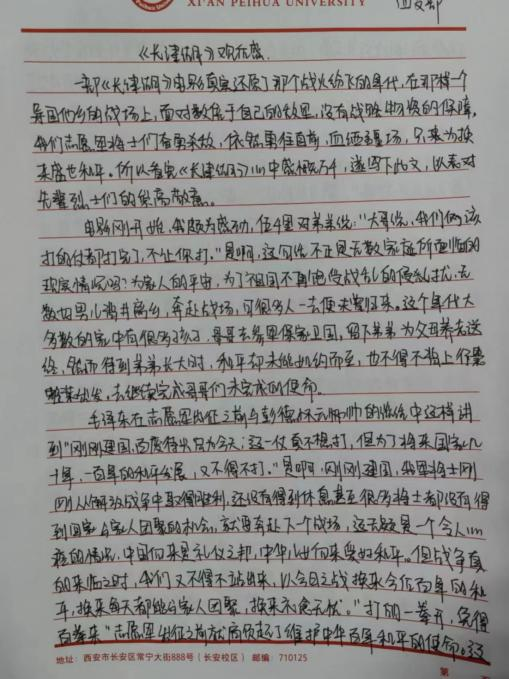 XI'AN PEIHUA UNIVERSITY
《长津湖》观后感
一部《长津湖》电影真实还原了那个战火纷飞的年代，在那样一个
异国他乡的战场上，面对数倍于自己的敌军，没有战胜物资的保障，
我们志愿军将士们奋勇杀敌，依然勇往直前，血洒疆场，只为换
来盛世和平。所以看完《长津湖》心中感慨万千，遂写下此文，以表对
先辈烈士们的崇高敬意。
电影刚开始，我颇为感动，伍千里对弟弟说："大哥说，我们俩该
打的仗都打完了，不让你打。"是啊，这句话不正是无数家庭所面临的
现实情况吗？为家人的平安，为了祖国不再饱受战乱的侵扰，无
数中男儿背井离乡，奔赴战场，可很多人一去便未曾归来。这个年代大
多数的家中有很多孩子，哥哥去参军保家卫国，留下弟弟为父母养老送
终，然而待到弟弟长大时，和平却未能如约而至，也不得不背上行囊
踏装出发，去继续完成哥哥们未完成的使命。
毛泽东在志愿军出征之前与彭德怀元帅的谈话中这样讲
到"刚刚建国，百废待兴只为今天；这一仗真不想打，但为了将来国家几
十年，一百年的和平发展，又不得不打。"是啊，刚刚建国，我军将士刚
刚从解放战争中取得胜利，还没有得到休息甚至很多将士都没有得
到回家与家人团聚的机会，就要奔赴下一个战场，这无疑是一个令人心
疼的情况，中国向来是礼仪之邦，中华儿女向来爱好和平。但战争真
的来临之时，我们又不得不站出来，以今日之战换来今后百年的和
平，换来每天都能与家人团聚，换来衣食无忧。"打的一拳开，免得
百拳来"志愿军出征之前就肩负起了维护中华百年和平的使命。这
地址：西安市长安区常宁大街888号（长安校区） 邮编：710125
第